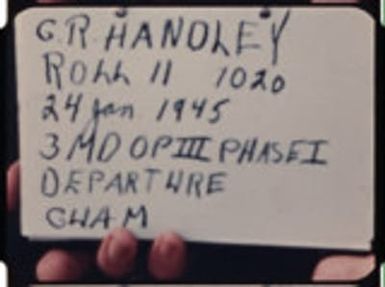 G.R. HANDLEY
ROLL 11 1020
24 Jan 1945
3 MD OP III PHASE I
DEPARTURE
GUAM